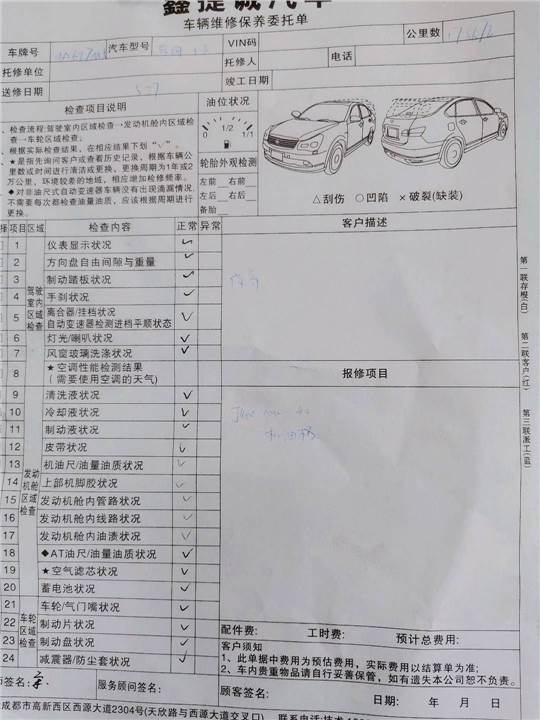 鑫捷诚汽车
车辆维修保养委托单
车牌号 汽车型号 VIN码 公里数
托修单位 托修人 电话
送修日期 5-7 竣工日期
检查项目说明 油位状况
检查流程:驾驶室内区域检查→发动机舱内区域检
查→车轮区域检查;
根据实际检查结果,在相应结果下划“√”。
★是指先询问客户或查看历史记录,根据车辆公
里数或时间进行清洁或更换,更换周期为1年或2
万公里,环境较差的地域,相应增加检修频率。
◆对非油尺式自动变速器车辆没有出现渗漏情况,
不需要每次都检查油量油质,应该根据周期进行
更换。
0 1/2 1/1
轮胎外观检测
左前 右前
左后 右后
备胎
△刮伤 ○凹陷 ×破裂(缺装)
择 项目 区域 检查内容 正常 异常 客户描述
驾驶室内区域检查
1 仪表显示状况 ✓
2 方向盘自由间隙与重量 ✓
3 制动踏板状况 ✓
4 手刹状况 ✓
5 离合器/挂档状况
自动变速器检测进档平顺状态 ✓
6 灯光/喇叭状况 ✓
7 风窗玻璃洗涤状况 ✓
8 ★空调性能检测结果
(需要使用空调的天气)
保养
报修项目
机油格
发动机舱区域检查
9 清洗液状况 ✓
10 冷却液状况 ✓
11 制动液状况 ✓
12 皮带状况 ✓
13 机油尺/油量油质状况 ✓
14 上部机脚胶状况 ✓
15 发动机舱内管路状况 ✓
16 发动机舱内线路状况 ✓
17 发动机舱内油渍状况 ✓
18 ◆AT油尺/油量油质状况 ✓
19 ★空气滤芯状况 ✓
20 蓄电池状况 ✓
车轮区域检查
21 车轮/气门嘴状况 ✓
22 制动片状况 ✓
23 制动盘状况 ✓
24 减震器/防尘套状况 ✓
第一联存根(白) 第二联客户(红) 第三联派工(蓝)
配件费: 工时费: 预计总费用:
客户须知
1、此单据中费用为预估费用,实际费用以结算单为准;
2、车内贵重物品请自行妥善保管,如有遗失本公司恕不负责。
师签名: 服务顾问签名: 顾客签名: 日期: 年 月 日
成都市高新西区西源大道2304号(天欣路与西源大道交叉口) 联系电话:技术